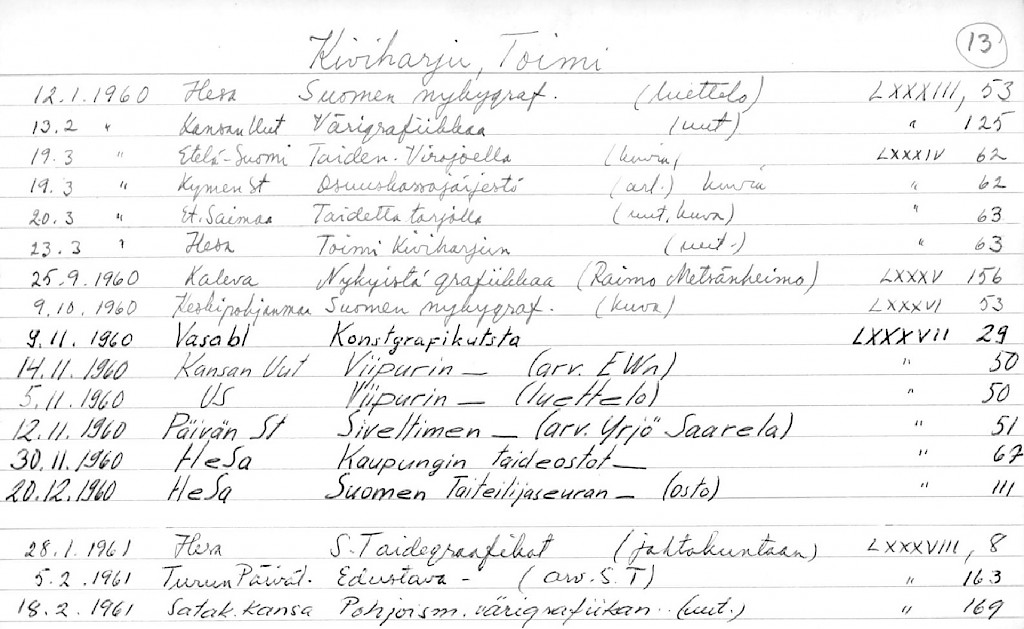 13
Kiviharju, Toimi
12.1.1960 Hesa Suomen nykygraf. (luettelo) LXXXIII, 53
13.2 " Kansan Uut Värigrafiikkaa (uut) " 125
19.3 " Etelä-Suomi Taiden. Virojoella (kuvia) LXXXIV 62
19.3 " Kymen St Osuuskassajärjestö (art.) kuvia " 62
20.3 " Et. Saimaa Taidetta tarjolla (uut, kuva) " 63
23.3 " Hesa Toimi Kiviharjun (uut.) " 63
25.9.1960 Kaleva Nykyistä grafiikkaa (Raimo Metsänheimo) LXXXV 156
9.10.1960 Keskipohjanmaa Suomen nykygraf. (kuva) LXXXVI 53
9.11.1960 Vasabl Konstgrafikutsta LXXXVII 29
14.11.1960 Kansan Uut Viipurin — (arv. EWn) " 50
5.11.1960 US Viipurin — (luettelo) " 50
12.11.1960 Päivän St Siveltimen — (arv. Yrjö Saarela) " 51
30.11.1960 HeSa Kaupungin taideostot — " 67
20.12.1960 HeSa Suomen Taiteilijaseuran — (osto) " 111
28.1.1961 Hesa S. Taidegraafikot (johtokuntaan) LXXXVIII, 8
5.2.1961 Turun Päivät. Edustava - (arv. S.T) " 163
18.2.1961 Satak. Kansa Pohjoism. värigrafiikan.. (uut.) " 169